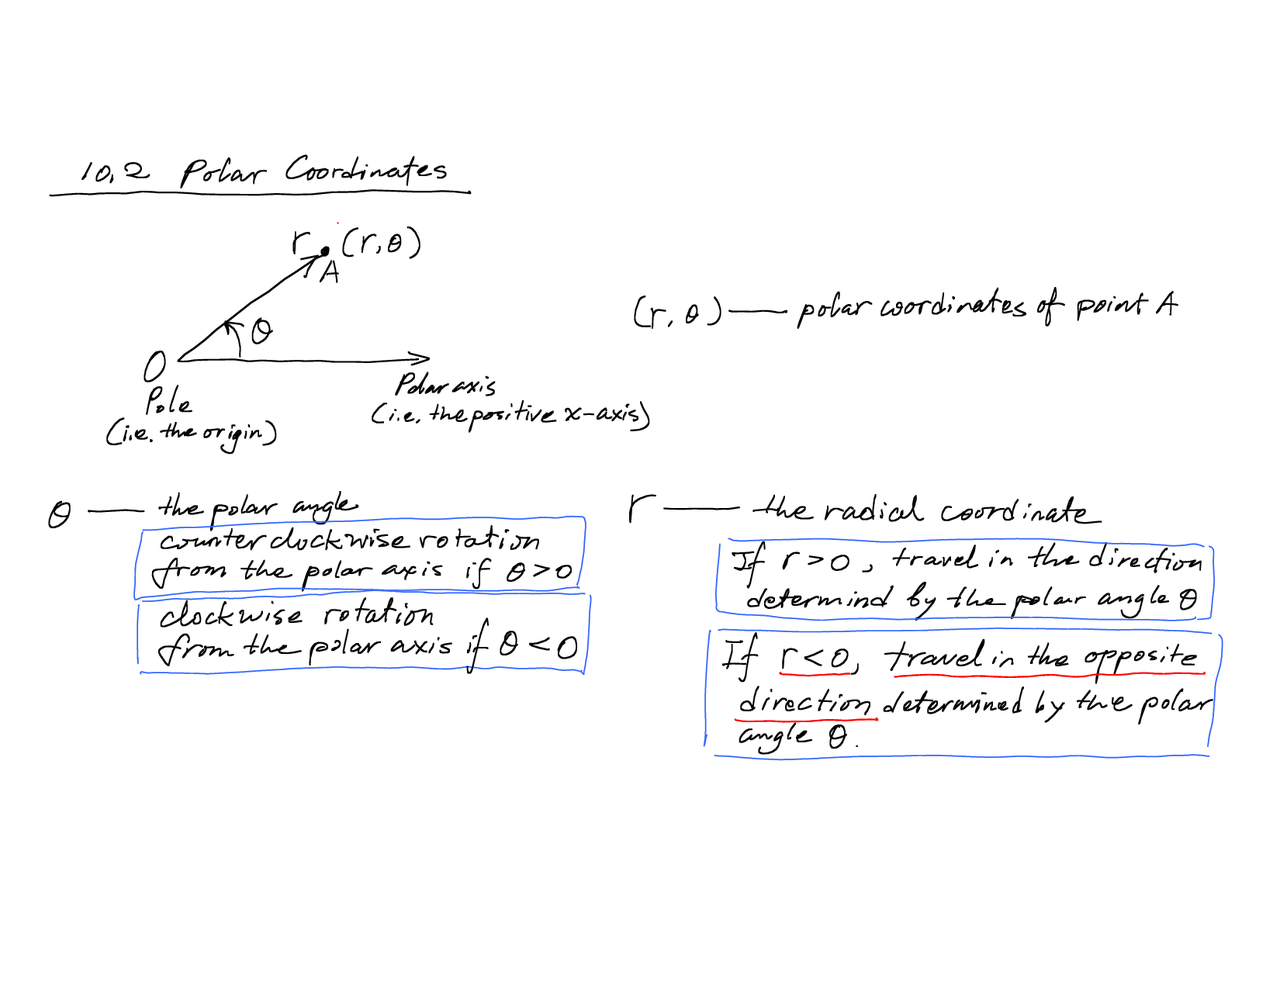 10.2 Polar Coordinates
r (r, θ)
A
θ
(r, θ) — polar coordinates of point A
O
Pole
(i.e. the origin)
Polar axis
(i.e. the positive x-axis)
θ — the polar angle
counterclockwise rotation
from the polar axis if θ>0
clockwise rotation
from the polar axis if θ<0
r — the radial coordinate
If r>0, travel in the direction
determind by the polar angle θ
If r<0, travel in the opposite
direction determined by the polar
angle θ.